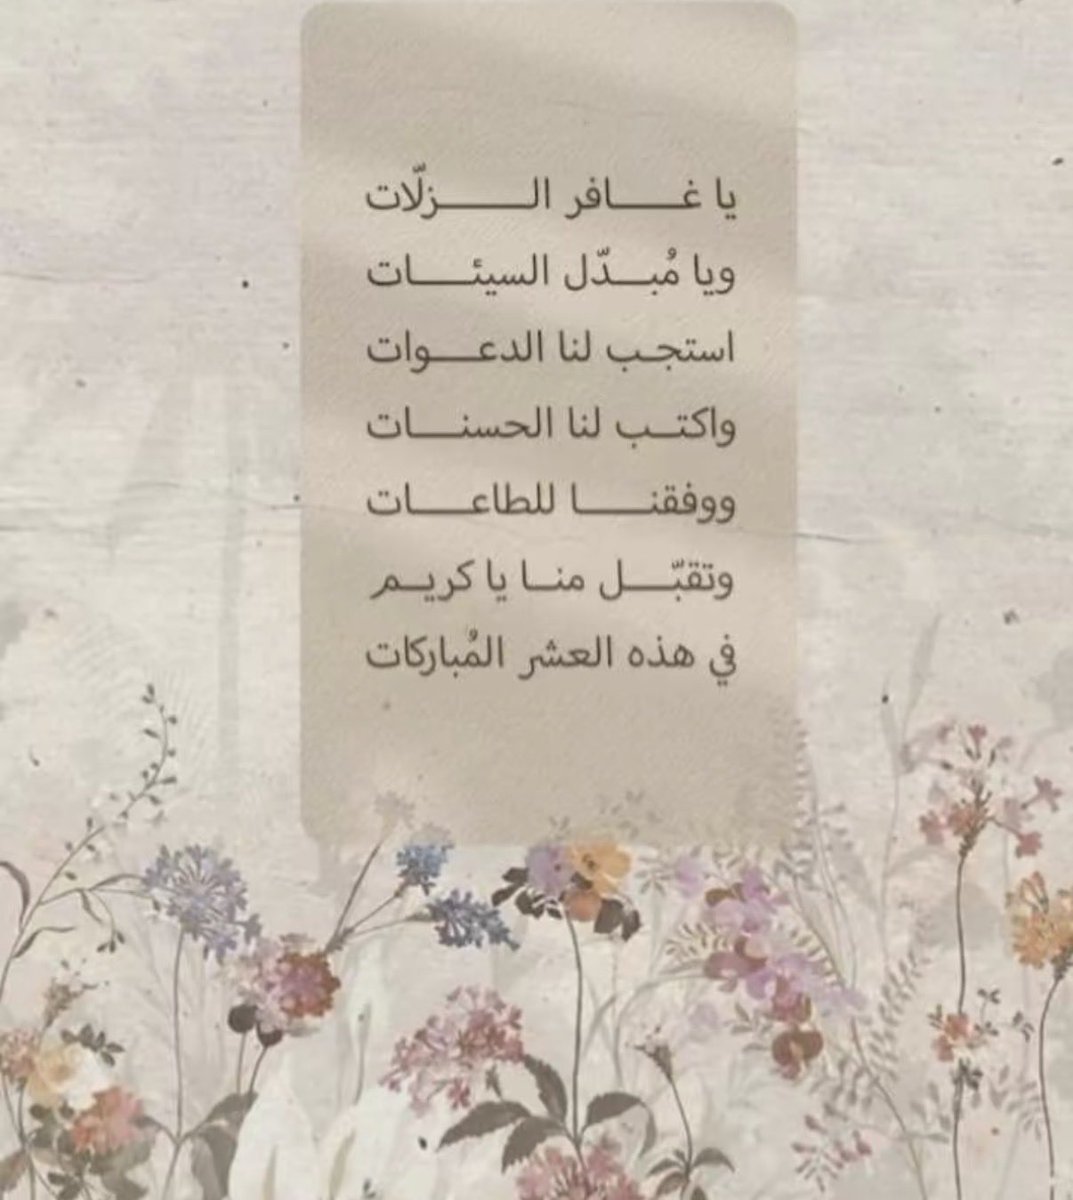 يا غافر الزلّات
ويا مُبدّل السيئات
استجب لنا الدعوات
واكتب لنا الحسنات
ووفقنا للطاعات
وتقبّل منا يا كريم
في هذه العشر المُباركات